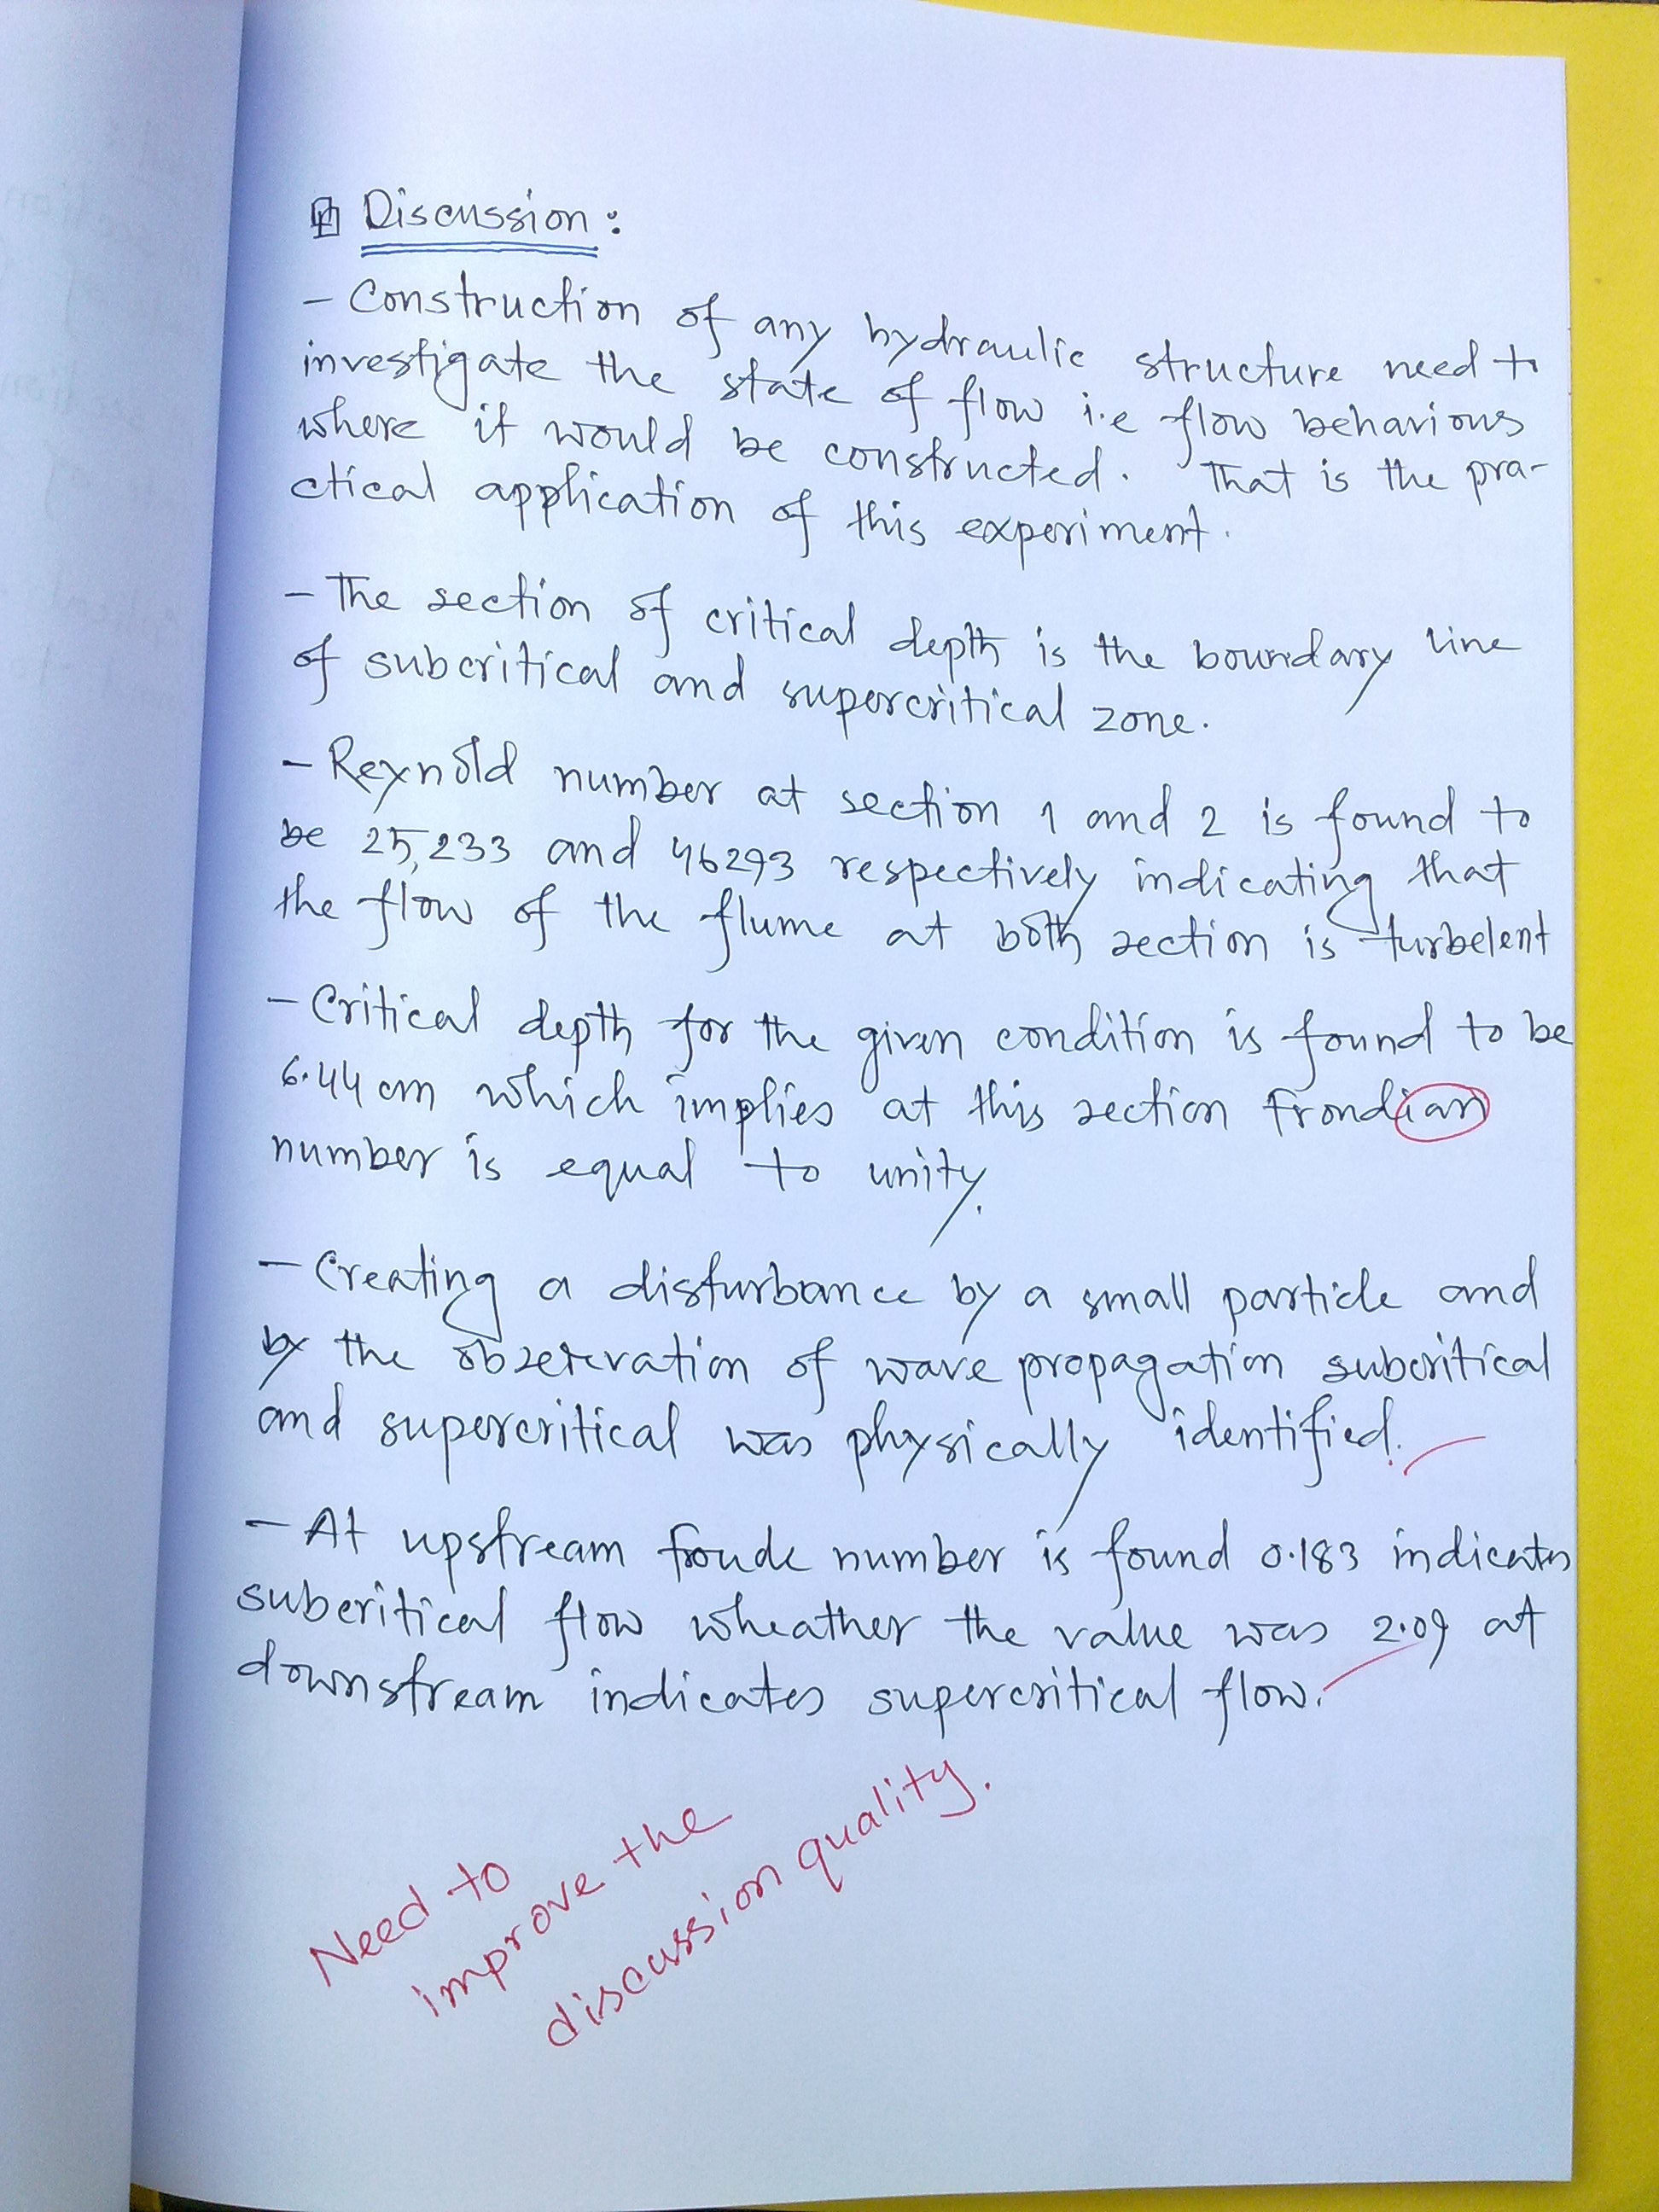 Discussion :
- Construction of any hydraulic structure need to
investigate the state of flow i.e flow behavious
where it would be constructed. That is the pra-
ctical application of this experiment.
- The section of critical depth is the boundary line
of subcritical and supercritical zone.
- Reynold number at section 1 and 2 is found to
be 25,233 and 46293 respectively indicating that
the flow of the flume at both section is turbelent
- Critical depth for the given condition is found to be
6.44 cm which implies at this section Froudian
number is equal to unity.
- Creating a disturbance by a small particle and
by the observation of wave propagation subcritical
and supercritical was physically identified.
- At upstream froude number is found 0.183 indicates
subcritical flow wheather the value was 2.09 at
downstream indicates supercritical flow.
Need to
improve the
discussion quality.